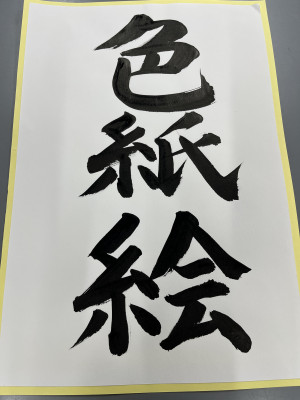 色紙絵